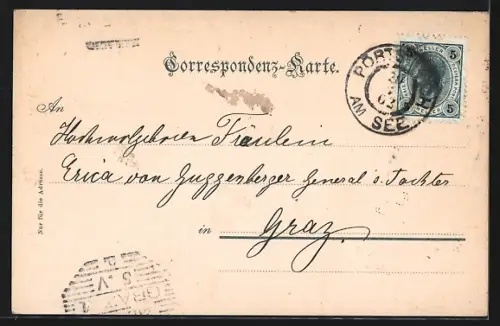 Correspondenz-Karte.
PÖRTSCHACH
AM SEE
5 HELLER 5
An
Hochwolgeboren Fräulein
Erica von Guggenberger General's Tochter
in Graz.
Nur für die Adresse.
GRAZ
5.V